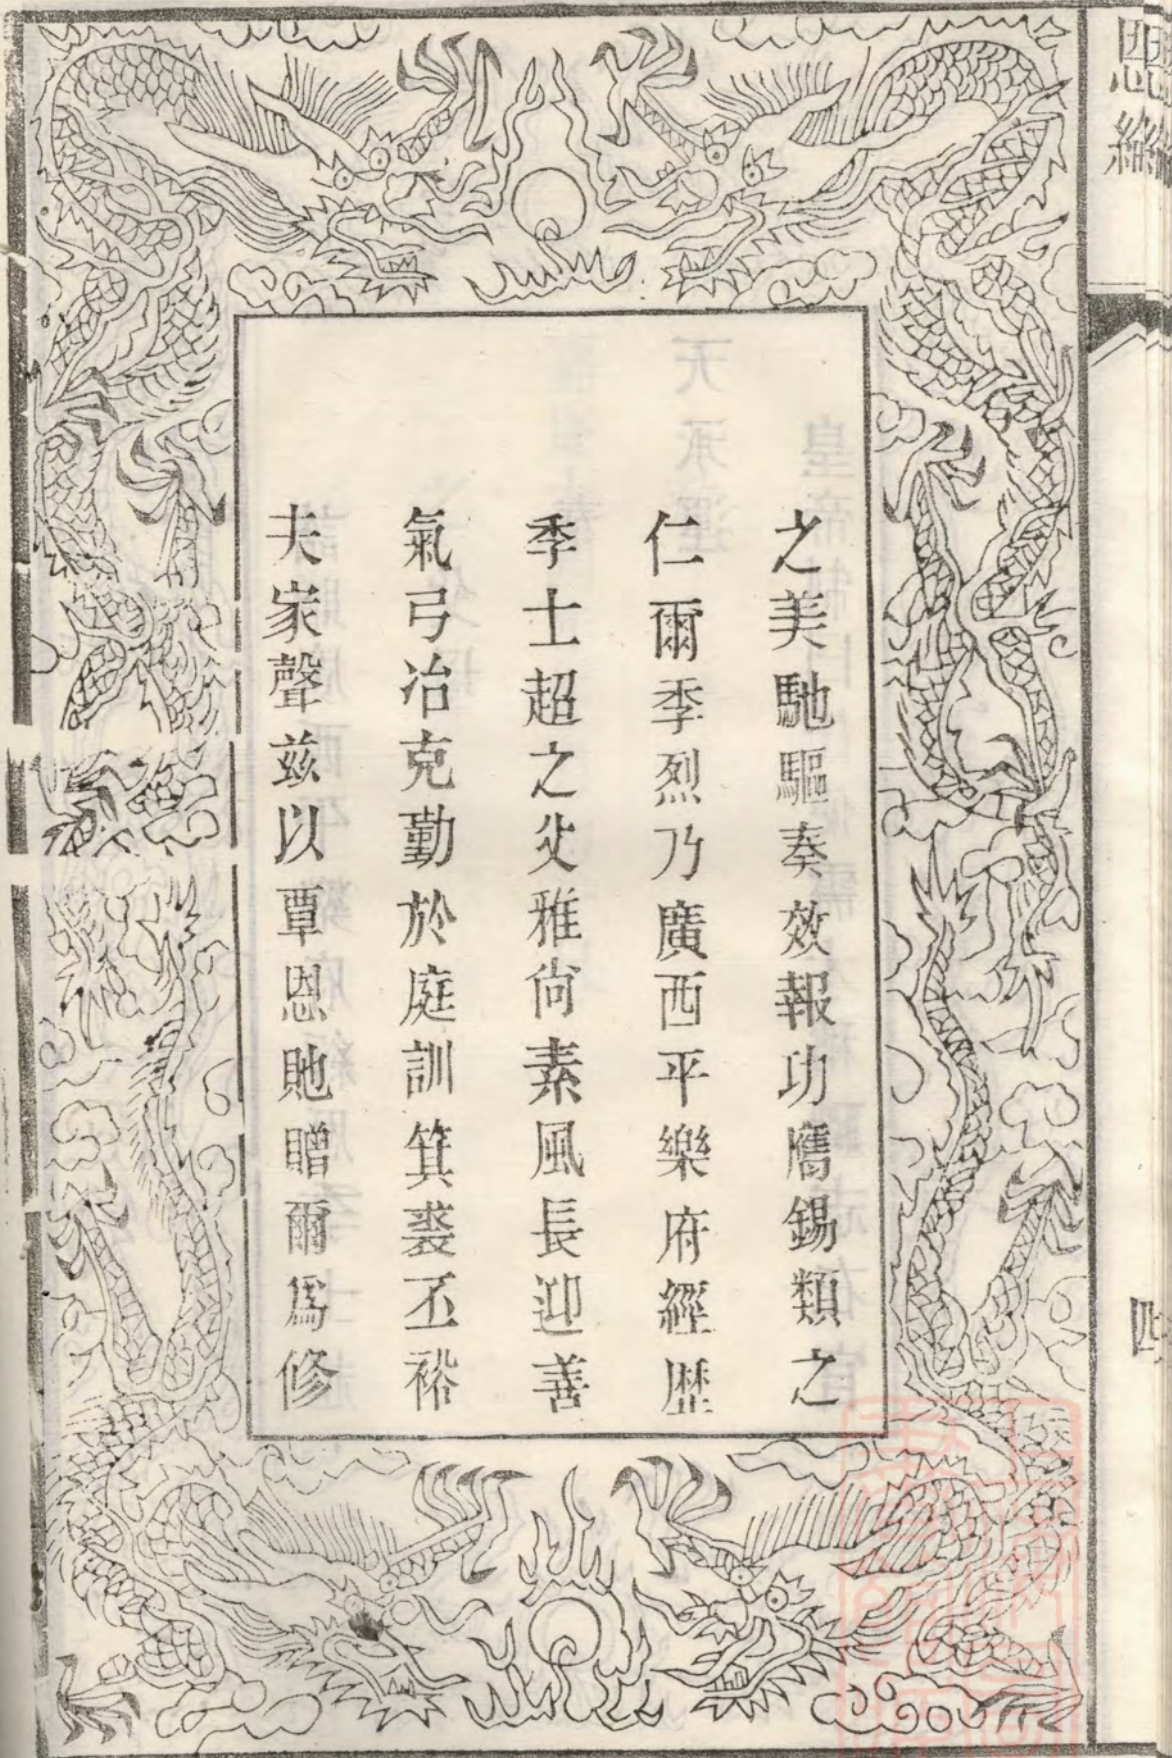 恩綸
四
之美馳驅奏效報功膺錫類之
仁爾季烈乃廣西平樂府經歷
季士超之父雅尚素風長迎善
氣弓冶克勤於庭訓箕裘丕裕
夫家聲兹以覃恩貤贈爾爲修